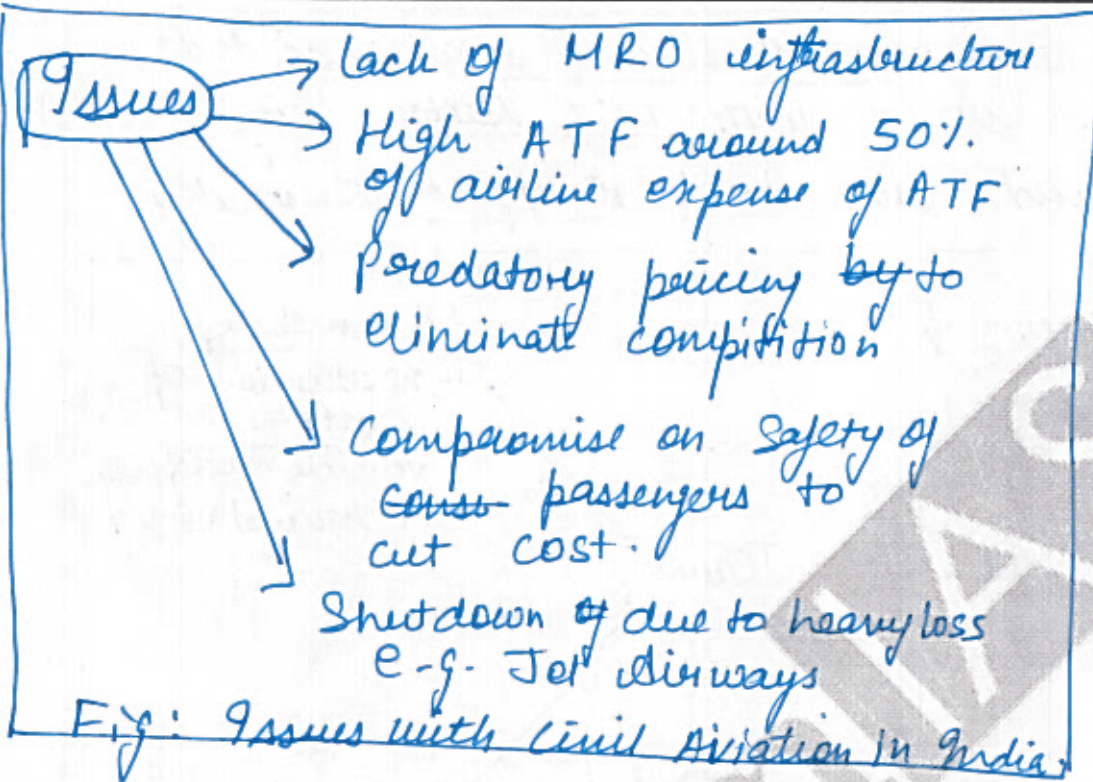 Issues
Lack of MRO infrastructure
High ATF around 50%
of airline expense of ATF
Predatory pricing by to
eliminate compitition
Compromise on safety of
const passengers to
cut cost.
Shutdown of due to heavy loss
e.g. Jet Airways
Fig: Issues with Civil Aviation in India.